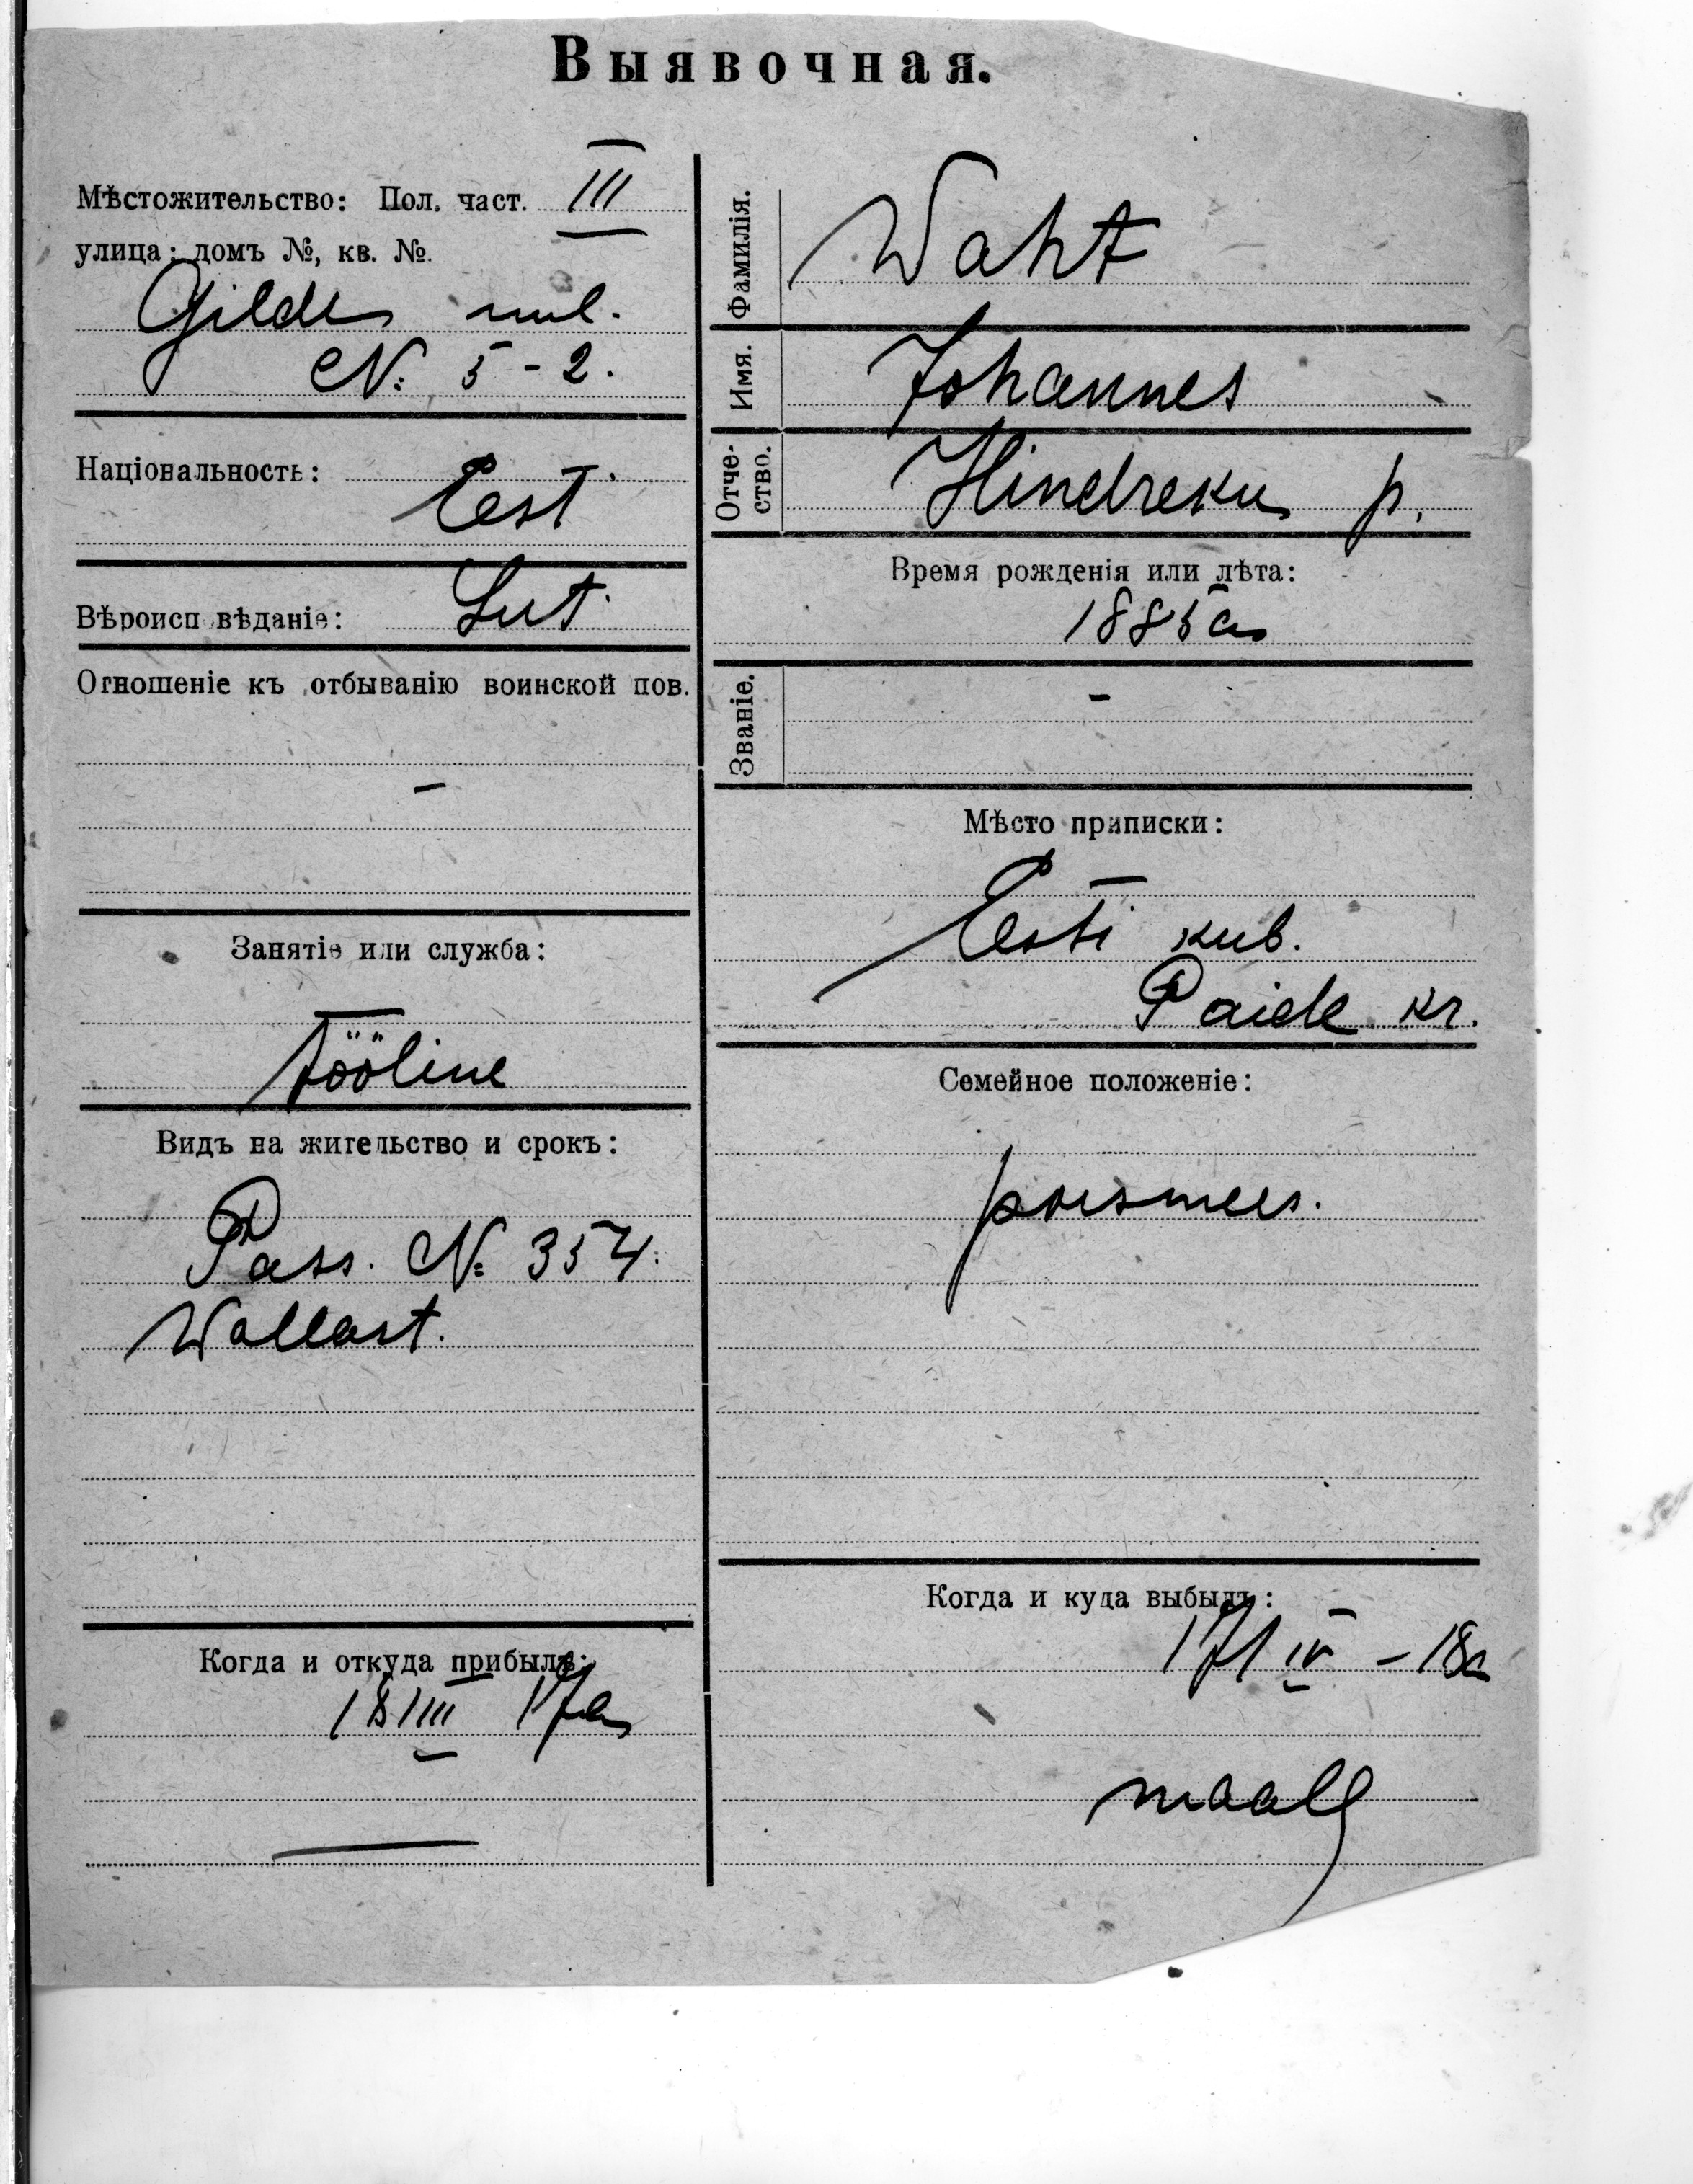 Выявочная.
Мѣстожительство: Пол. част. III
улица: домъ №, кв. №.
Gildi uul.
№: 5-2.
Національность:
Eest.
Вѣроисповѣданіе: Lut.
Отношеніе къ отбыванію воинской пов.
-
Занятіе или служба:
tööline
Видъ на жительство и срокъ:
Pass. №: 354.
Wallast.
Когда и откуда прибылъ:
18/III 17a
Фамилія. Waht
Имя. Johannes
Отче-
ство. Hindreku p.
Время рожденія или лѣта:
1885a
Званіе. -
Мѣсто приписки:
Eesti kub.
Paide kr.
Семейное положеніе:
poismees.
Когда и куда выбылъ:
17/IV - 18a
maale